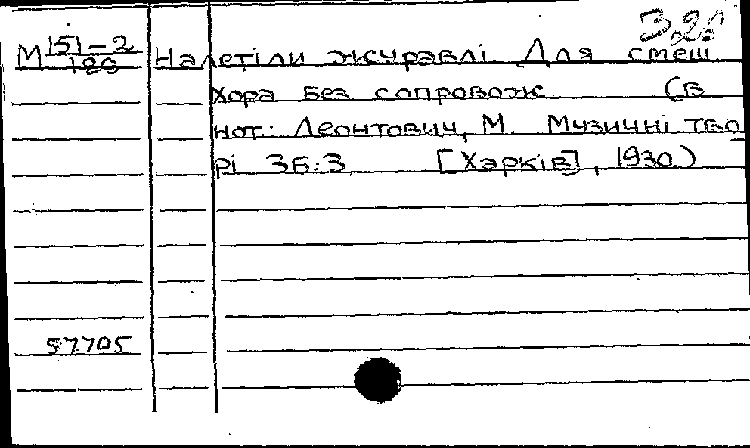 М 151-2 Налетіли журавлі Для смеш
хора без сопровож (в
нот: Леонтович, М. Музичні тво
рі Зб:3 [Харків], 1930)
57705